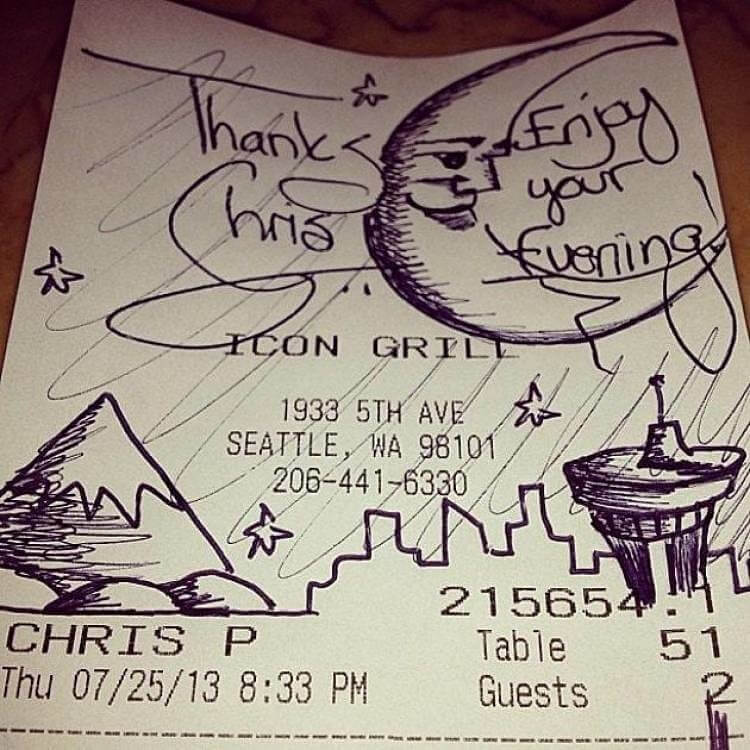 Thanks
Chris
Enjoy
your
Evening!
ICON GRILL
1933 5TH AVE
SEATTLE, WA 98101
206-441-6330
215654.1
CHRIS P Table 51
Thu 07/25/13 8:33 PM Guests 2